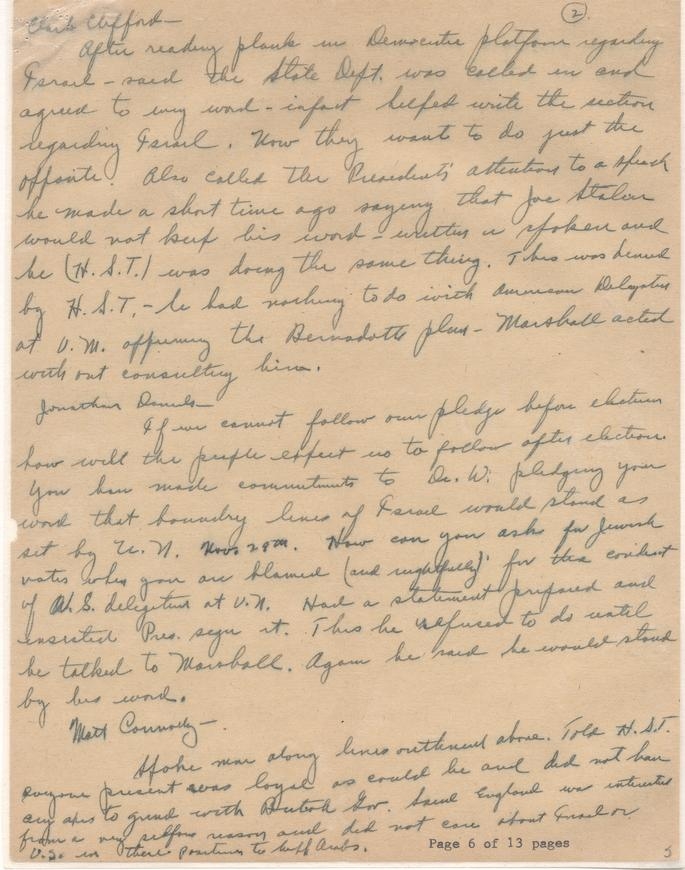 2
Clark Clifford—
After reading plank in Democratic platform regarding
Israel – said the State Dept. was called in and
agreed to every word – infact helped write the section
regarding Israel. Now they want to do just the
opposite. Also called the President's attention to a speech
he made a short time ago saying that Joe Stalin
would not keep his word – written or spoken and
he (H.S.T.) was doing the same thing. This was denied
by H.S.T. – he had nothing to do with American Delegates
at U.N. approving the Bernadotte plan – Marshall acted
with out consulting him.
Jonathan Daniels—
If we cannot follow our pledge before election
how will the people expect us to follow after election.
You have made commitments to Dr. W. pledging your
word that boundry lines of Israel would stand as
set by U.N. Nov. 29th. How can you ask for Jewish
votes when you are blamed (and rightfully) for the conduct
of U.S. delegation at U.N. Had a statement prepared and
insisted Pres. sign it. This he refused to do until
he talked to Marshall. Again he said he would stand
by his word.
Matt Connolly—
Spoke more along lines outlined above. Told H.S.T.
everyone present was loyal as could be and did not have
any axes to grind with British Gov. Said England was interested
from a very selfish reason and did not care about Israel or
U.S. in there position to Arabs.
Page 6 of 13 pages
5